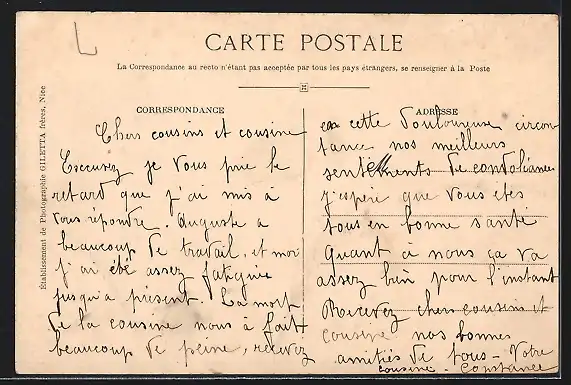 CARTE POSTALE
La Correspondance au recto n'étant pas acceptée par tous les pays étrangers, se renseigner à la Poste
Établissement de Photographie GILETTA frères, Nice
CORRESPONDANCE
Chers cousins et cousine
Excusez je vous prie le
retard que j'ai mis à
vous répondre. Auguste a
beaucoup de travail, et moi
j'ai été assez fatiguée
jusqu'a présent. La mort
de la cousine nous à fait
beaucoup de peine, recevez
ADRESSE
en cette douloureuse circons
tance nos meilleurs
sentements de condoléances
j'espère que vous êtes
tous en bonne santé
Quant à nous ça va
assez bien pour l'instant
Recevez chers cousins et
cousine nos bonnes
amitiés de tous - Votre
cousine - Constance